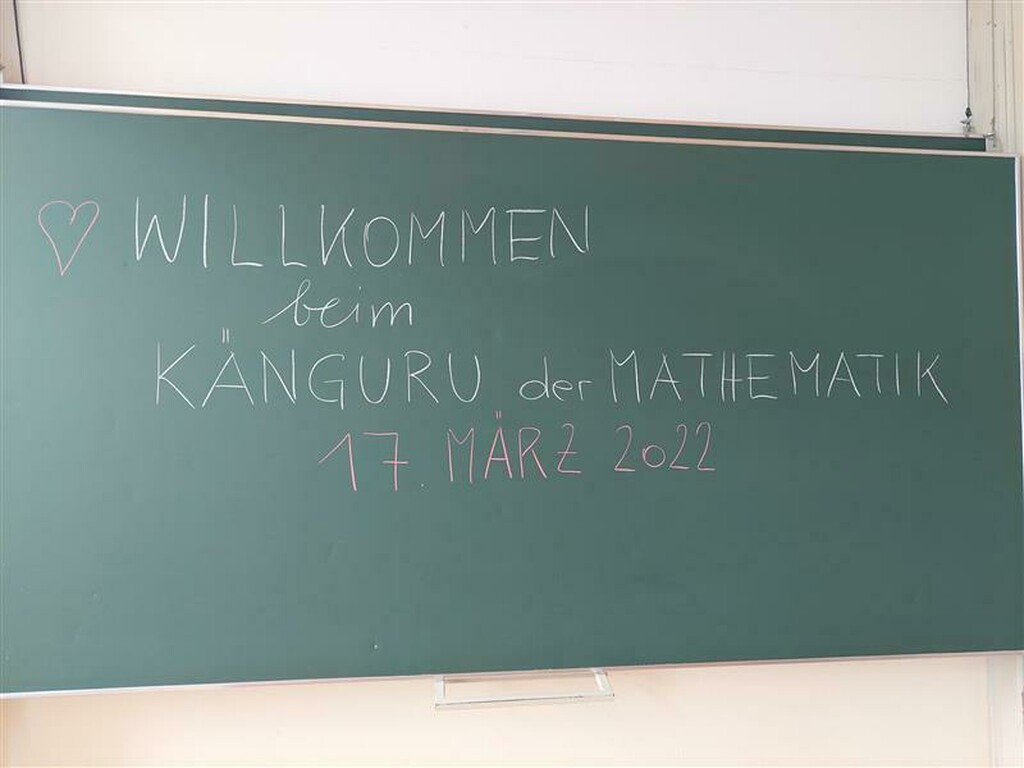 ♡ WILLKOMMEN
beim
KÄNGURU der MATHEMATIK
17. MÄRZ 2022